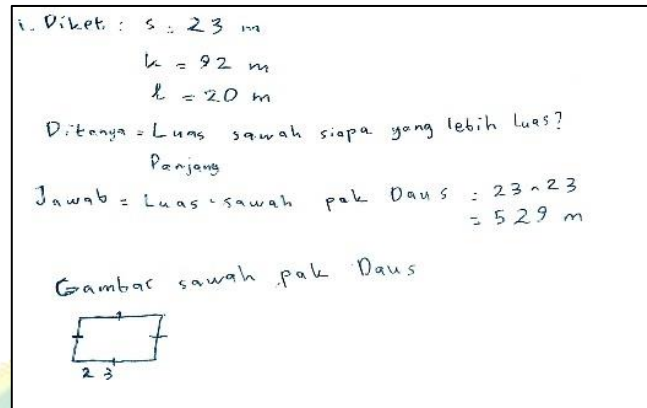 1. Diket : s : 23 m
k = 92 m
l = 20 m
Ditanya = Luas sawah siapa yang lebih luas?
Panjang
Jawab = Luas sawah pak Daus : 23 x 23
= 529 m
Gambar sawah pak Daus
23